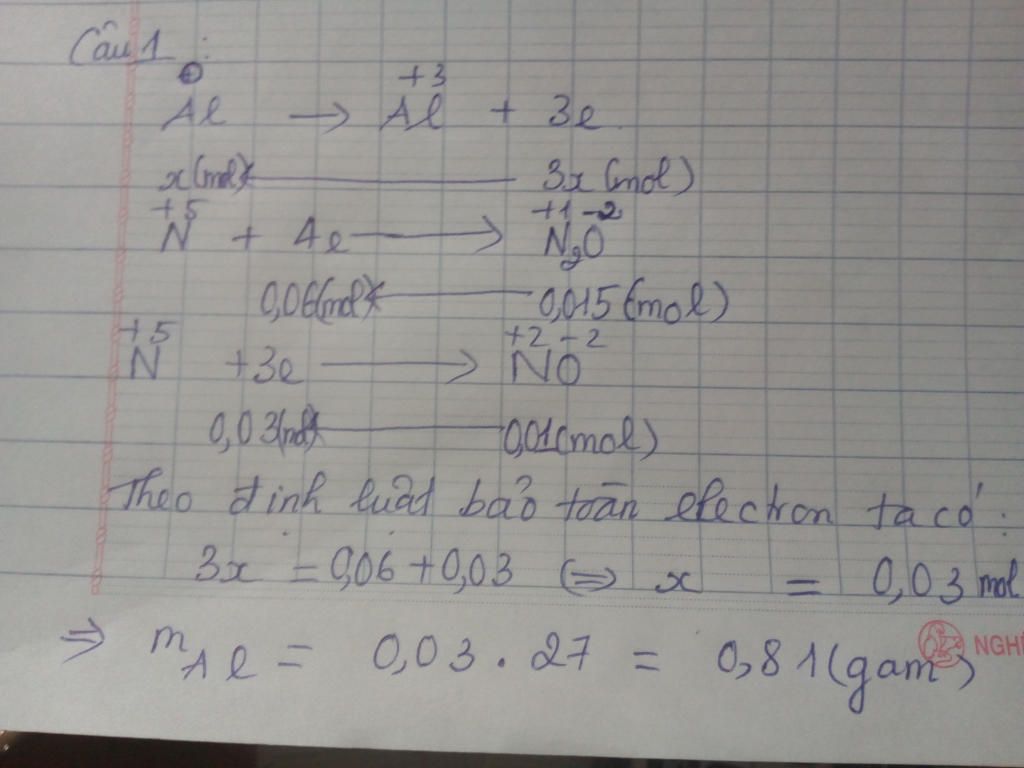 Câu 1 :
0 +3
Al → Al + 3e
x(mol) ← 3x (mol)
+5 +1 -2
N + 4e → N2O
0,06(mol) ← 0,015(mol)
+5 +2 -2
N +3e → NO
0,03(mol) ← 0,01(mol)
Theo định luật bảo toàn electron ta có :
3x = 0,06 + 0,03 (=> x = 0,03 mol
=> mAl = 0,03 . 27 = 0,81(gam)
NGHI